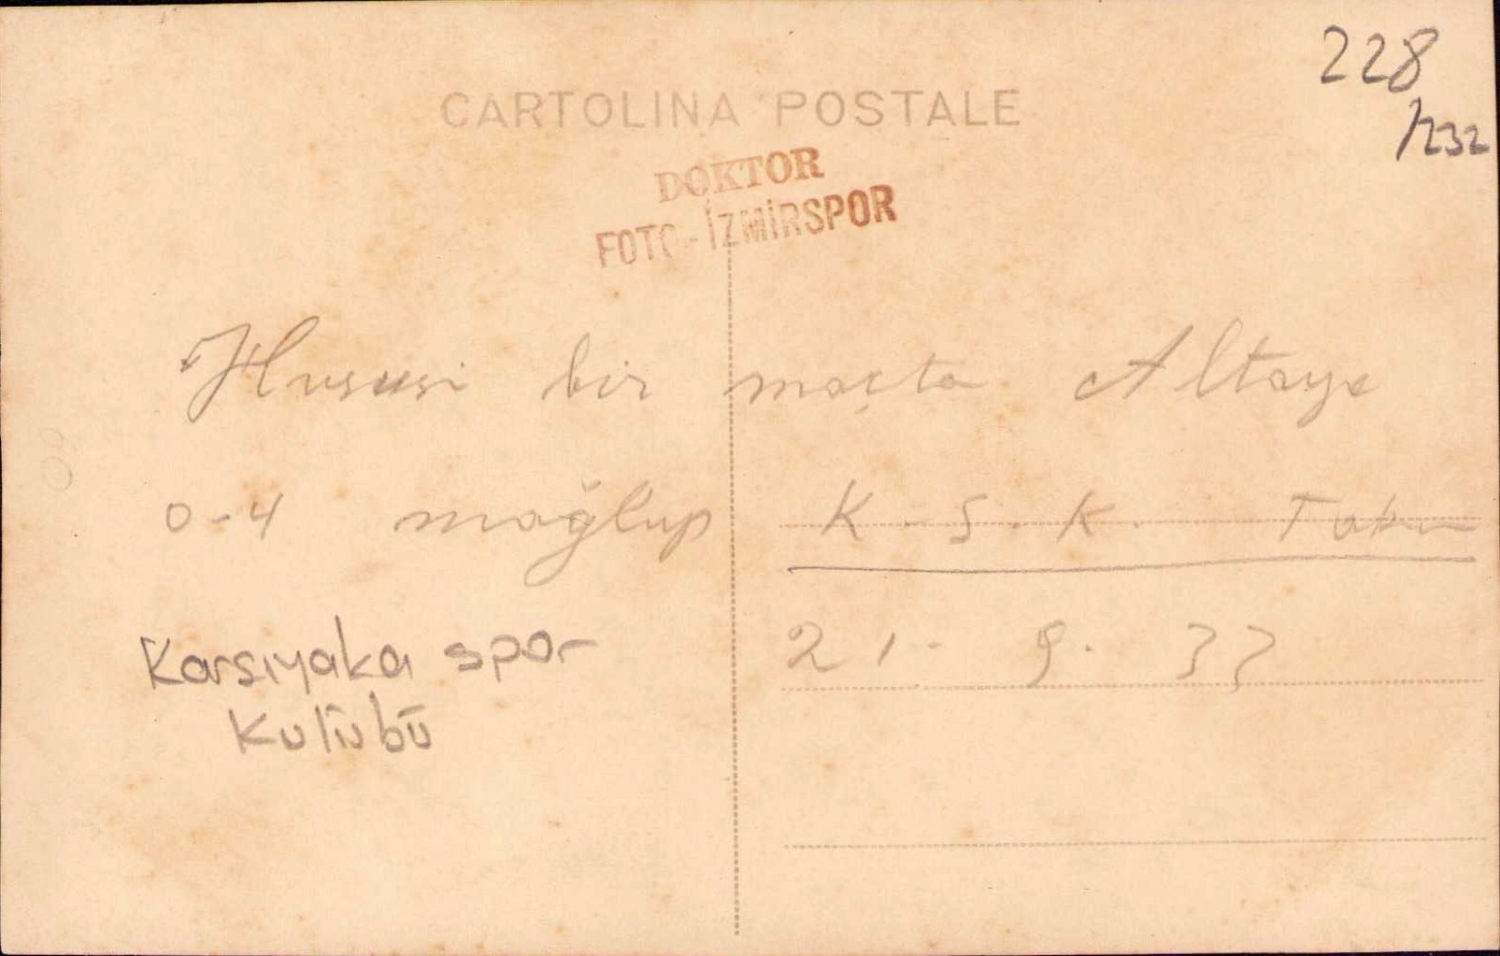 228
/232
CARTOLINA POSTALE
DOKTOR
FOTO-İZMİRSPOR
Hususi bir maçta Altaya
0-4 mağlup K.S.K.
Karsıyaka spor
Kulübü
21.9.33